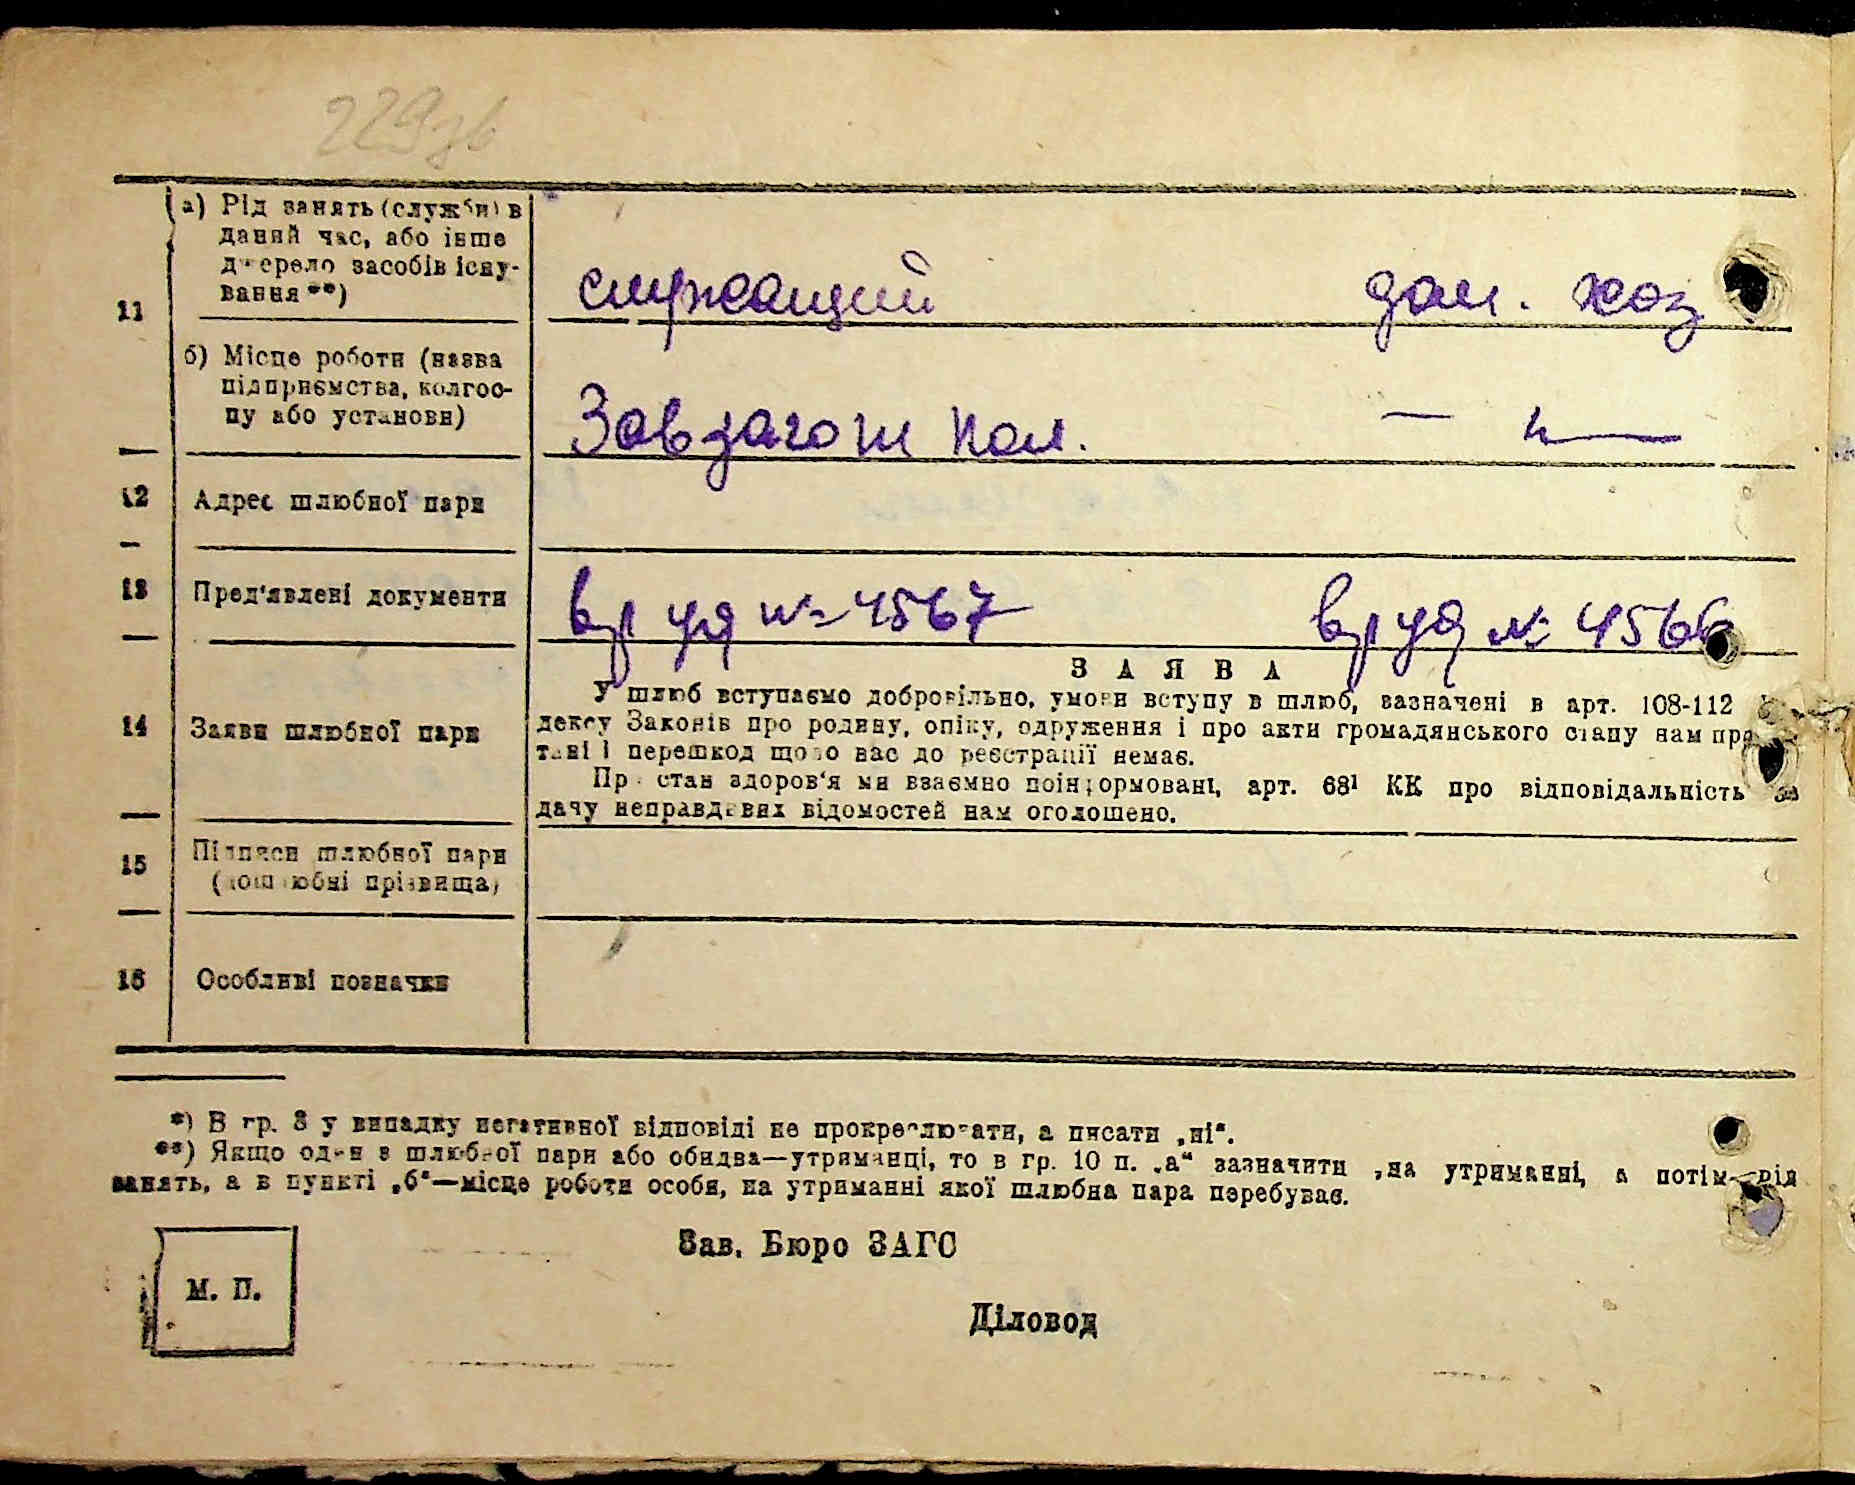 229зв
11
а) Рід занять (служби) в
даний час, або інше
джерело засобів існу-
вання **)
служащий дом. хоз
б) Місце роботи (назва
підприємства, колгос-
пу або установи)
Завзаготпом. — " —
12 Адрес шлюбної пари
13 Пред'явлені документи вр уд № 4567 вр уд № 4566
14 Заяви шлюбної пари
ЗАЯВА
У шлюб вступаємо добровільно, умови вступу в шлюб, зазначені в арт. 108-112
дексу Законів про родину, опіку, одруження і про акти громадянського стану нам пра
тані і перешкод щодо нас до реєстрації немає.
Про стан здоров'я ми взаємно поінформовані, арт. 68¹ КК про відповідальність за
дачу неправдивих відомостей нам оголошено.
15 Підписи шлюбної пари
(дошлюбні прізвища)
16 Особливі позначки
*) В гр. 8 у випадку негативної відповіді не прокреслювати, а писати „ні“.
**) Якщо один з шлюбної пари або обидва—утриманці, то в гр. 10 п. „а“ зазначити „на утриманні, а потім—рід
занять, а в пункті „б“—місце роботи особи, на утриманні якої шлюбна пара перебуває.
Зав. Бюро ЗАГС
М. П.
Діловод